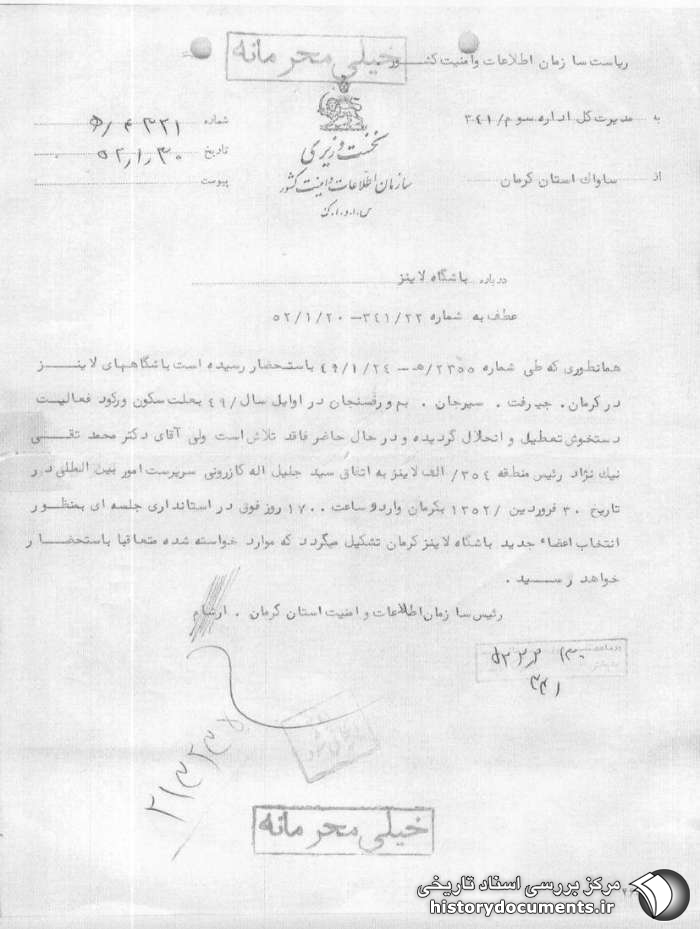 خیلی محرمانه
ریاست سازمان اطلاعات وامنیت کشــور
به مدیریت کل اداره سوم/۳٤۱
از ساواک استان کرمان
نخست وزیری
سازمان اطلاعات و امنیت کشور
س.ا.و.ا.ک
شماره ۴۳۲۱/ه
تاریخ ۵۲/۱/۳۰
پیوست
درباره باشگاه لاینز
عطف به شماره ۳٤۱/۲۲-۵۲/۱/۲۰
همانطوری که طی شماره ۲۳۵۵/هـ-٤۹/۱/۲٤ باستحضار رسیده است باشگاههای لاینــز
در کرمان. جیرفت. سیرجان. بم و رفسنجان در اوایل سال/٤۹ بعلت سکون ورکود فعالیـت
دستخوش تعطیل و انحلال گردیده و در حال حاضر فاقد تلاش است ولی آقای دکتر محمد تقــی
نیک نژاد رئیس منطقه ۳۵٤/الف لاینز به اتفاق سید جلیل اله کازرونی سرپرست امور بین المللی در
تاریخ ۳۰ فروردین /۱۳۵۲ بکرمان وارد و ساعت ۱۷۰۰ روز فوق در استانداری جلسه ای بمنظـور
انتخاب اعضاء جدید باشگاه لاینز کرمان تشکیل میگردد که موارد خواسته شده متعاقبا باستحضـا ر
خواهد رسـید.
رئیس سازمان اطلاعات و امنیت استان کرمان. ارشام
۳۴۱
خیلی محرمانه
مرکز بررسی اسناد تاریخی
historydocuments.ir